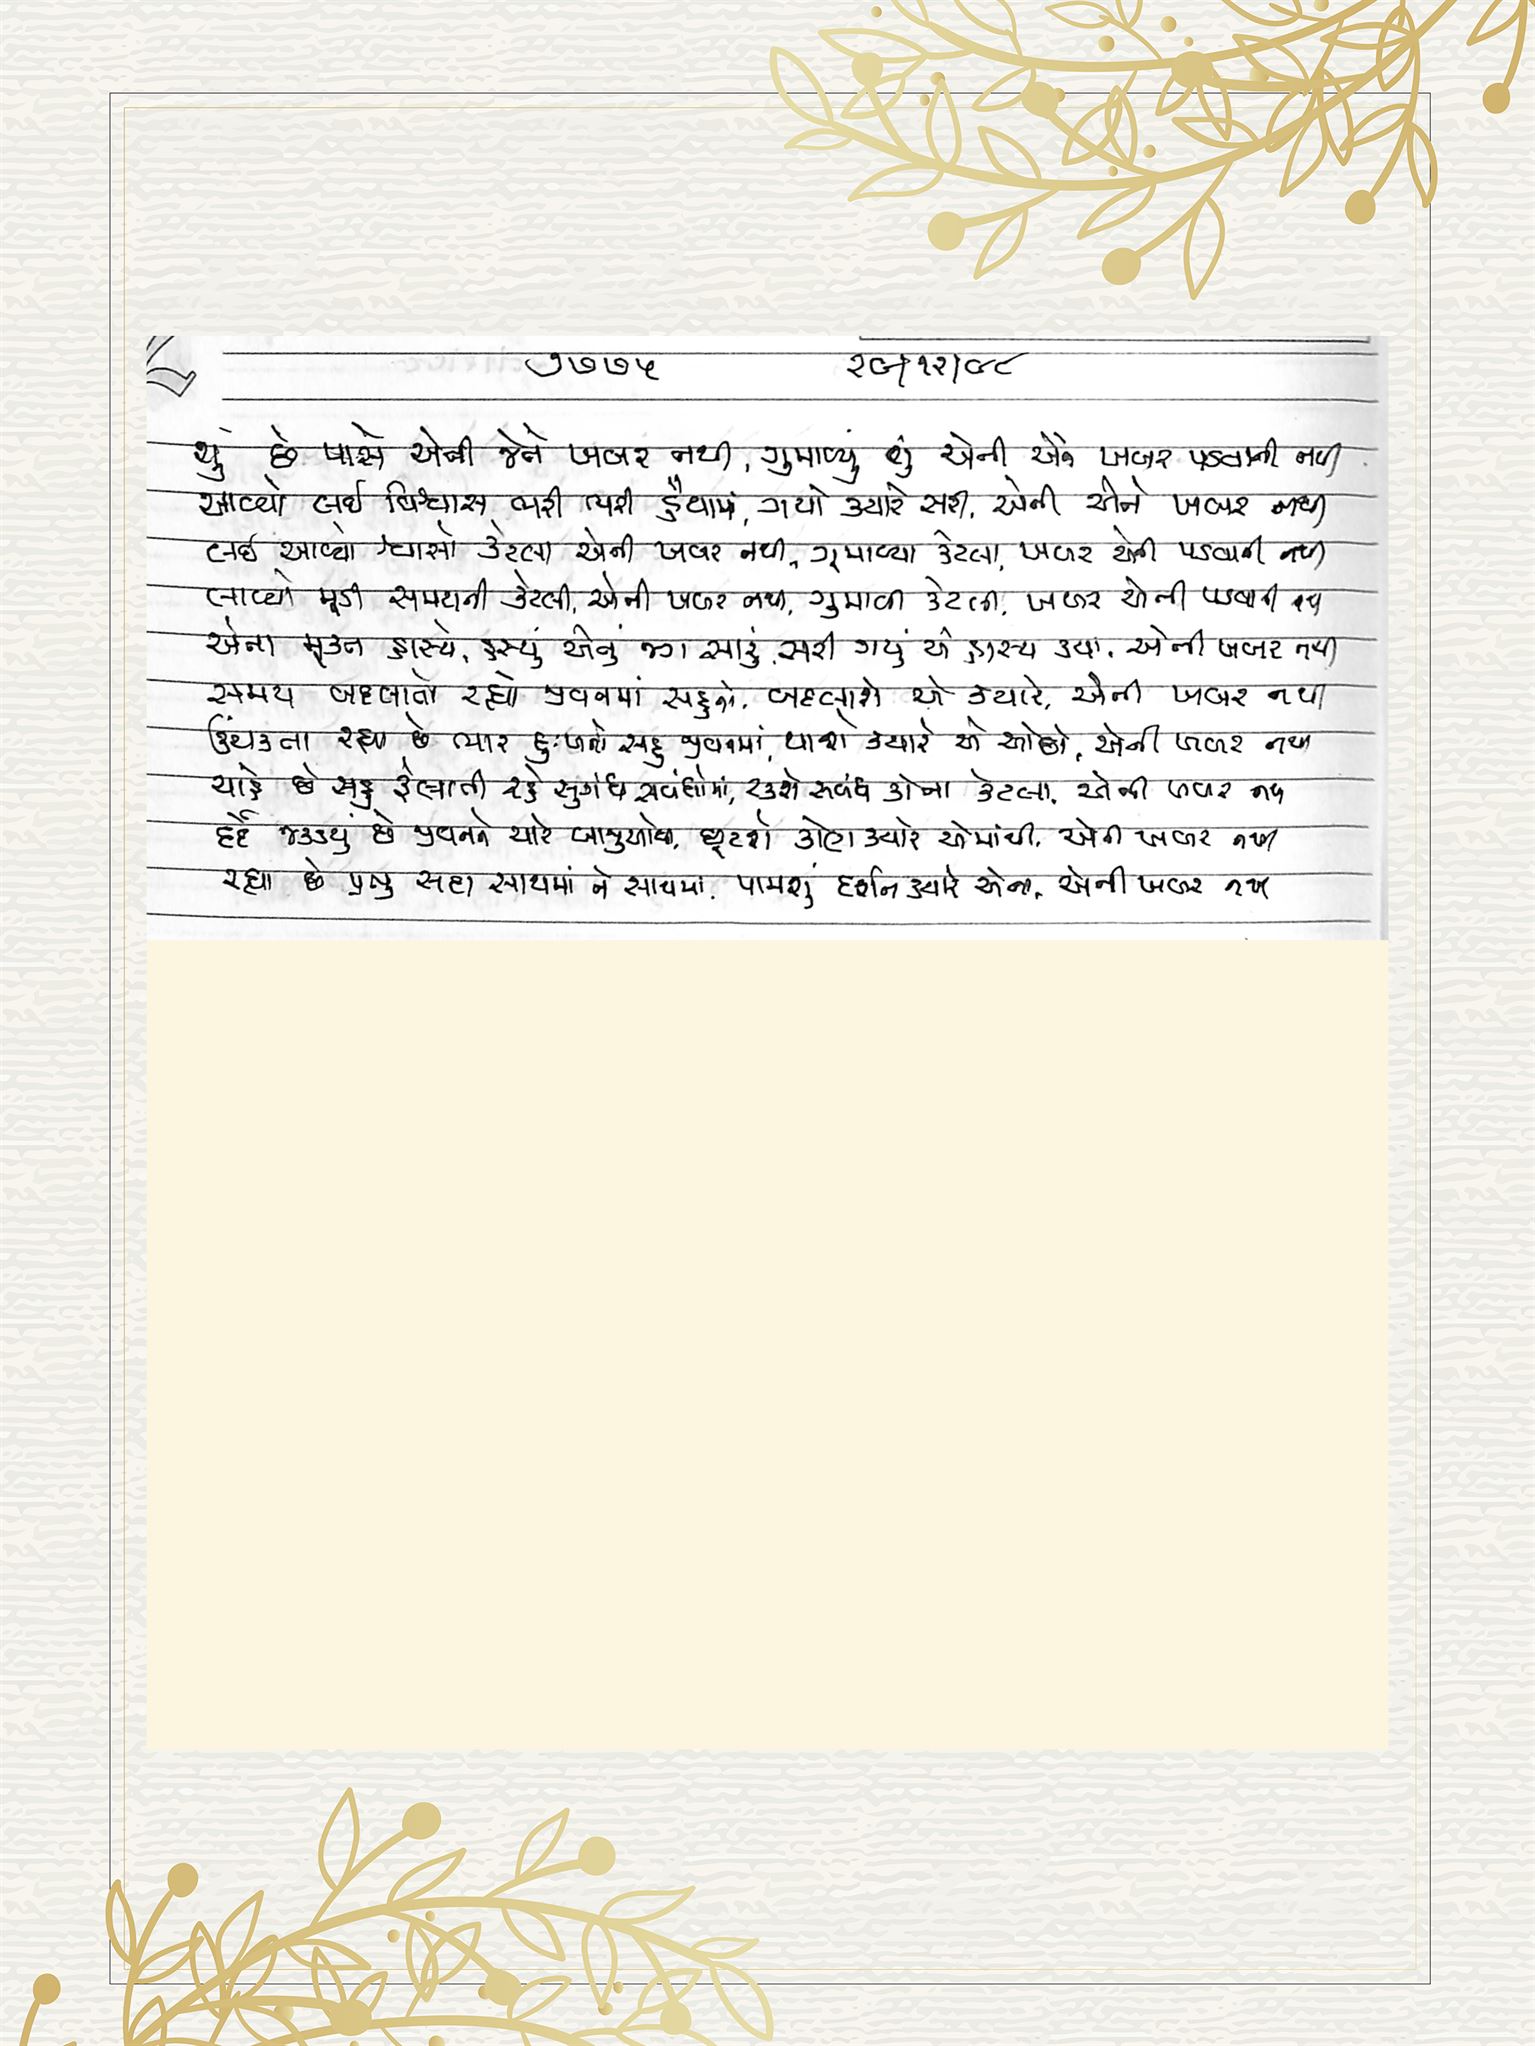 ૭૭૭૫ ૨૯/૧૨/૯૮
શું છે પાસે એની જેને ખબર નથી, ગુમાવ્યું શું એની એને ખબર પડવાની નથી
આવ્યો લઈ વિશ્વાસ ભરી ભરી હૈયામાં, ગયો ક્યારે સરી, એની એને ખબર નથી
લઈ આવ્યો શ્વાસો કેટલા એની ખબર નથી, ગુમાવ્યા કેટલા, ખબર એની પડવાની નથી
લાવ્યો મૂડી સમયની કેટલી, એની ખબર નથી, ગુમાવી કેટલી, ખબર એની પડવાની નથી
એના મૂક્ત હાસ્યે, હસ્યું એનું જગ સારું, સરી ગયું એ હાસ્ય ક્યાં, એની ખબર નથી
સમય બદલાતો રહ્યો જીવનમાં સહુનો, બદલાશે એ ક્યારે, એની ખબર નથી
ઉંચકતા રહ્યા છે ભાર દુઃખનો સહુ જીવનમાં, થાશે ક્યારે એ ઓછો, એની ખબર નથી
ચાહે છે સહુ ફેલાતી રહે સુગંધ સબંધોમાં, ટકશે સબંધ કોના કેટલા, એની ખબર નથી
દર્દે જકડયું છે જીવનને ચારે બાજુઓથી, છૂટશે કોણ ક્યારે એમાંથી, એની ખબર નથી
રહ્યા છે પ્રભુ સદા સાથમાં ને સાથમાં, પામશું દર્શન ક્યારે એના, એની ખબર નથી